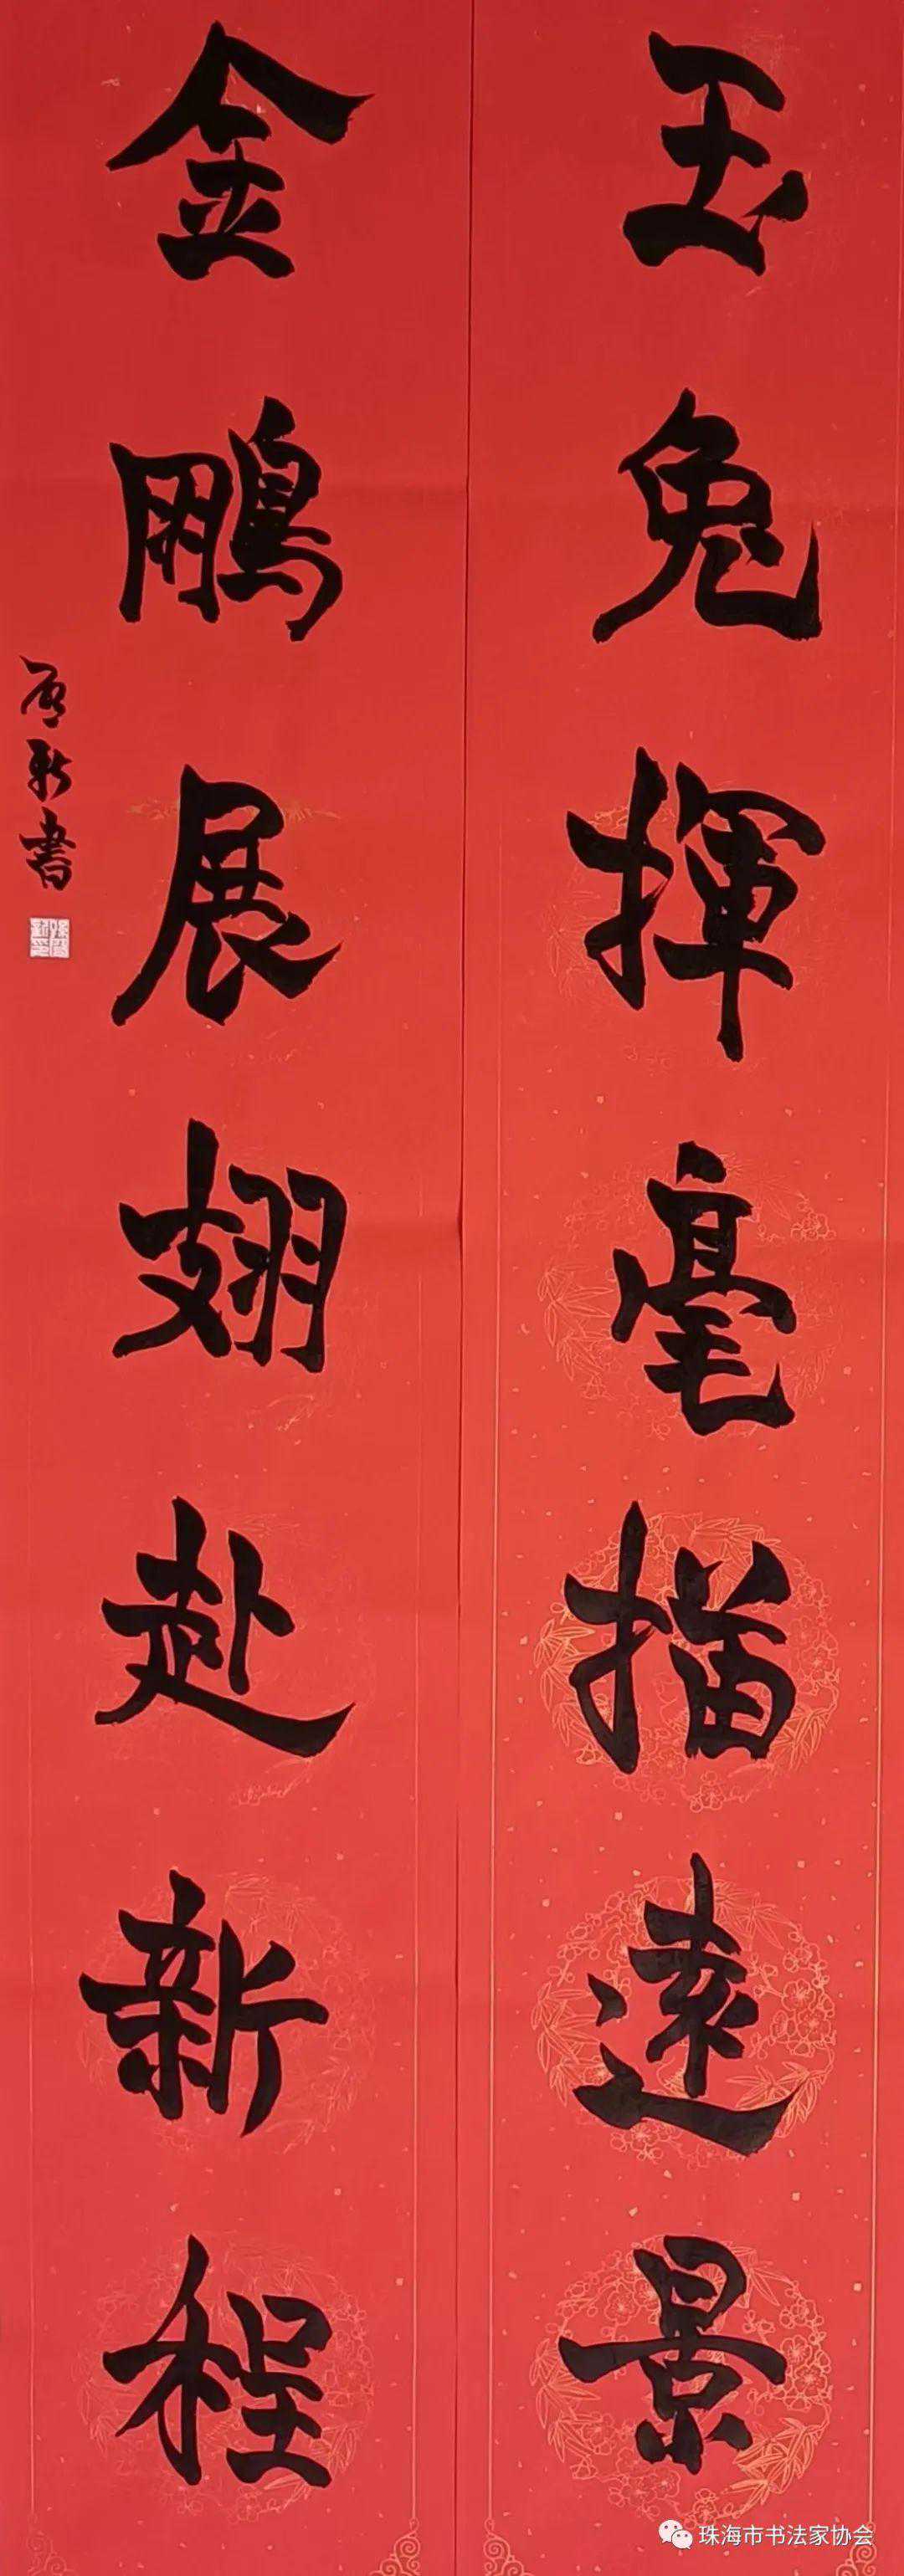 玉兔揮毫描遠景
金鵬展翅赴新程
啟新書
珠海市书法家协会